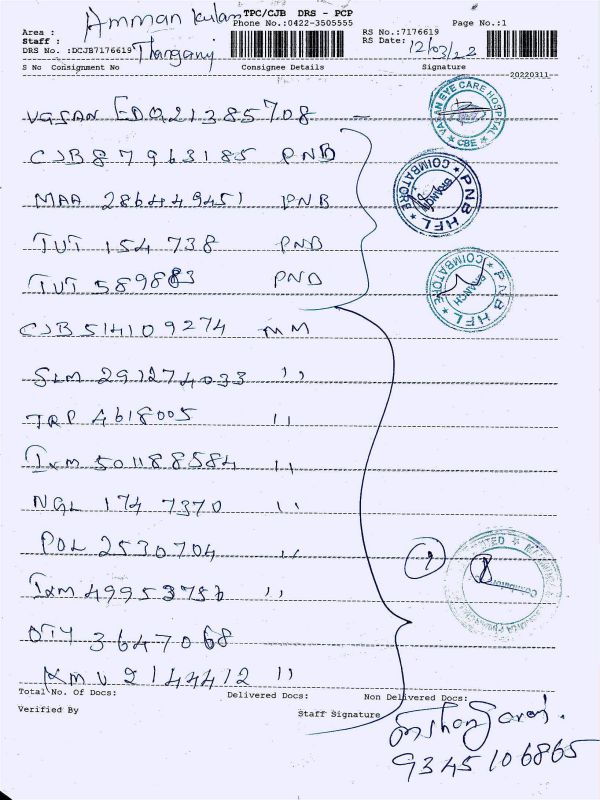 Amman Kulam TPC/CJB DRS - PCP
Phone No.:0422-3505555 RS No.:7176619 Page No.:1
Area :
Staff : Thangaraj RS Date: 12/03/22
DRS No. :DCJB7176619
S No Consignment No Consignee Details Signature
20220311
VASAN EDQ21385708 —
VASAN EYE CARE HOSPITAL
* CBE *
CJB 87963185 PNB
MAA 286449451 PNB
PNB HFL * COIMBATORE *
BRANCH
TUT 154738 PNB
TUT 589883 PNB
PNB HFL * COIMBATORE *
BRANCH
CJB 514109274 MM
SLM 291274033 ''
TRP 4618005 ''
Ixm 501188584 ''
NGL 1747370 ''
POL 2530704 ''
Ixm 49953756 ''
Coimbatore
OTY 3647068
KMU 2144412 ''
Total No. Of Docs: Delivered Docs: Non Delivered Docs:
Verified By Staff Signature
9345106865